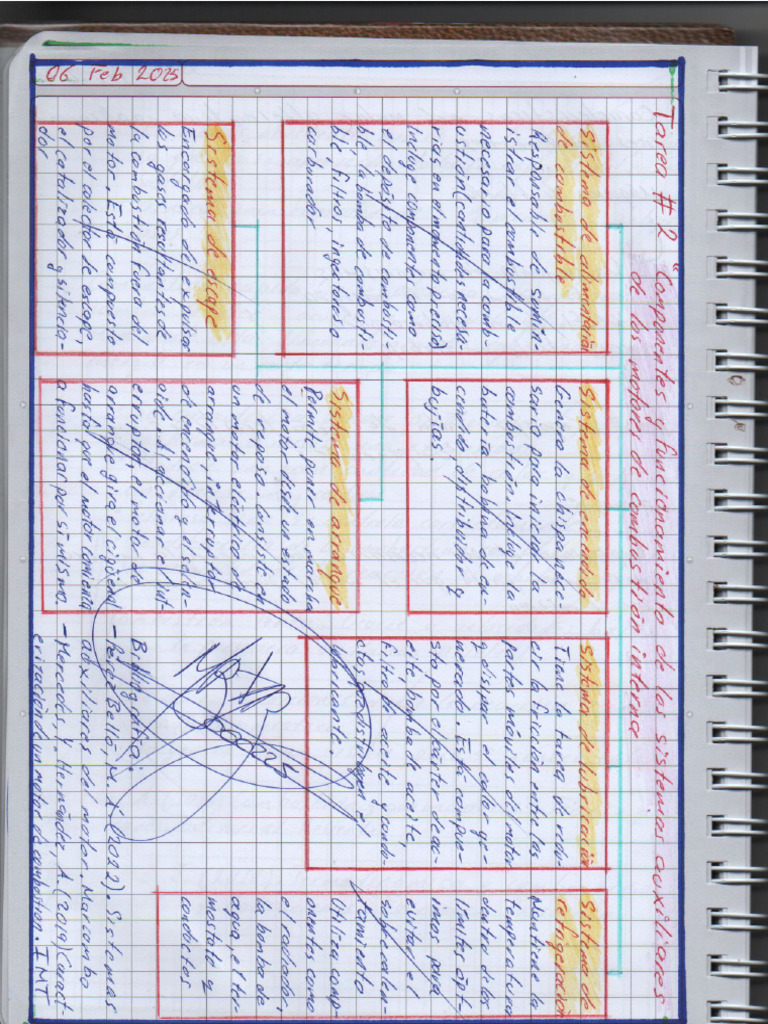 06 Feb 2025
Tarea # 2 "Componentes y funcionamiento de los sistemas auxiliares
de los motores de combustión interna
Sistema de alimentación
de combustible
Responsable de sumin-
istrar el combustible
necesario para la comb-
ustión (cantidades necesa-
rias en el momento preciso)
Incluye componentes como
el depósito de combusti-
ble, la bomba de combusti-
ble, filtro, inyectores o
carburador
Sistema de encendido
Genera la chispa nece-
saria para iniciar la
combustión. Incluye la
batería, bobina de en-
cendido, distribuidor y
bujías.
Sistema de lubricación
Tiene la tarea de redu-
cir la fricción entre las
partes móviles del motor
y disipar el calor ge-
nerado. Está compue-
sto por el cárter de ace-
ite, bomba de aceite,
filtro de aceite y condu-
ctos que distribuyen el
lubricante.
Sistema de
refrigeración
Mantiene la
temperatura
dentro de los
límites ópt-
imos para
evitar el
sobrecalen-
tamiento
Utiliza comp-
onentes como
el radiador,
la bomba de
agua, el ter-
mostato y
conductos
Sistema de escape
Encargado de expulsar
los gases resultantes de
la combustión fuera del
motor. Está compuesto
por el colector de escape,
el catalizador y silencia-
dor
Sistema de arranque
Permite poner en marcha
el motor desde un estado
de reposo. Consiste en
un motor eléctrico de
arranque, interruptor
de encendido y el solen-
oide. Al accionar el int-
erruptor, el motor de
arranque gira el cigüeñal
hasta que el motor comienza
a funcionar por si mismo.
Bibliografía:
Bello, M. A (2022). Sistemas
auxiliares del motor. Marcombo
- Mercedes, Y. Hernández, A. (2019) Caract-
erización de un motor de combustion. IMT